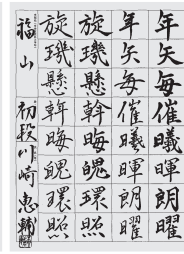 年矢每催曦暉朗曜
年矢每催曦暉朗曜
旋璣懸斡晦魄環照
旋璣懸斡晦魄環照
福山 初段 川崎恵輔